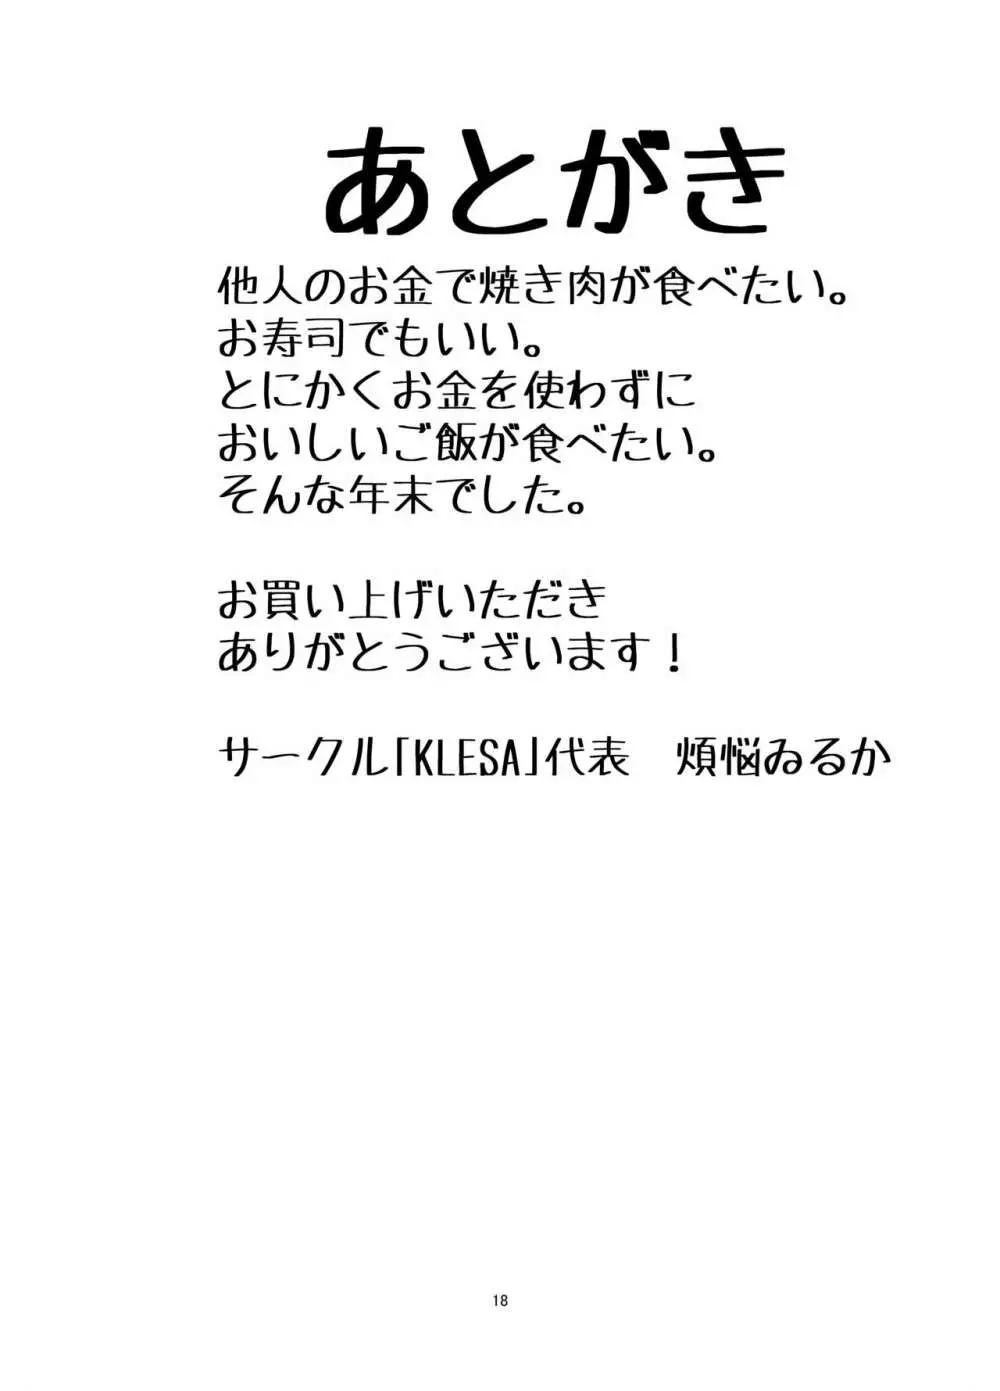 あとがき
他人のお金で焼き肉が食べたい。
お寿司でもいい。
とにかくお金を使わずに
おいしいご飯が食べたい。
そんな年末でした。
お買い上げいただき
ありがとうございます！
サークル「KLESA」代表　煩悩ゐるか
18